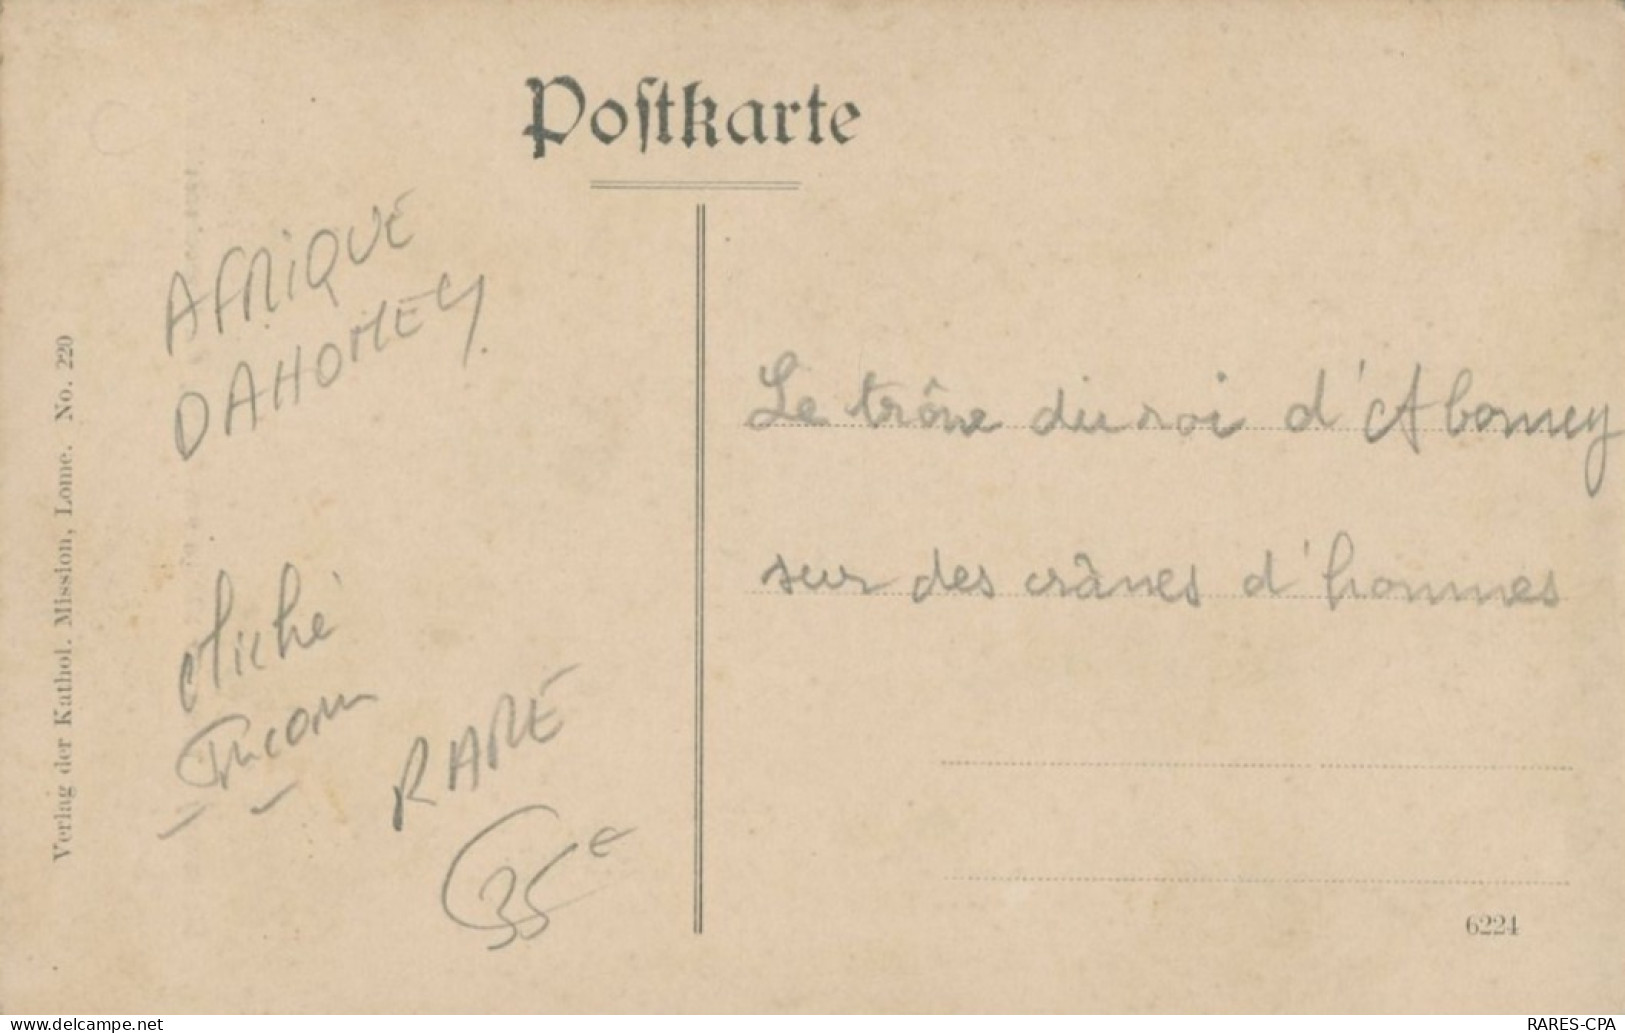 Postkarte
AFRIQUE
DAHOMEY
Cliché
RARE
35€
Verlag der Kathol. Mission, Lome. No. 220
Le trône du roi d'Abomey
sur des crânes d'hommes
6224
www.delcampe.net
RARES-CPA